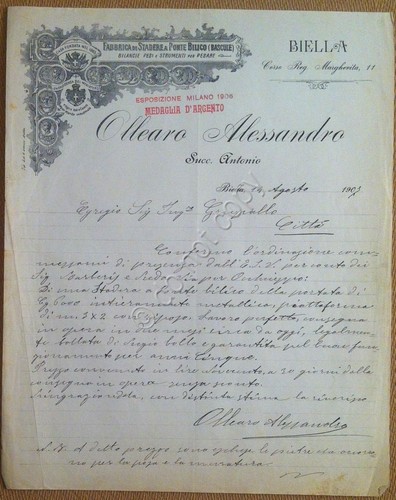 CASA FONDATA NEL
FABBRICA DI STADERE A PONTE BILICO (BASCULE)
BILANCIE PESI e STRUMENTI PER PESARE
BIELLA
Corso Reg. Margherita, 11
ESPOSIZIONE MILANO 1906
MEDAGLIA D'ARGENTO
Ollearo Alessandro
Succ. Antonio
Biella 14 Agosto 1907
Egregio Sig. Ing.
Città
Confermo l'ordinazione com-
messami di pregio dall' per conto dei
Sig. e per
Di una Stadera a Ponte bilico della portata di
Cg 6000 intieramente metallica, piattaforma
di m. 3x2 Lavoro perfetto, consegna
in opera in due mesi circa da oggi, legalmen-
te bollata di Regio bollo e garantita pel buon fun-
zionamento per anni cinque.
Prezzo convenuto in lire novecento, a 30 giorni dalla
consegna in opera senza sconto.
Ringraziandola, con distinta stima la riverisco
Ollearo Alessandro
N.B. A detto prezzo sono escluse le pietre che occorro-
no per la posa e la muratura.